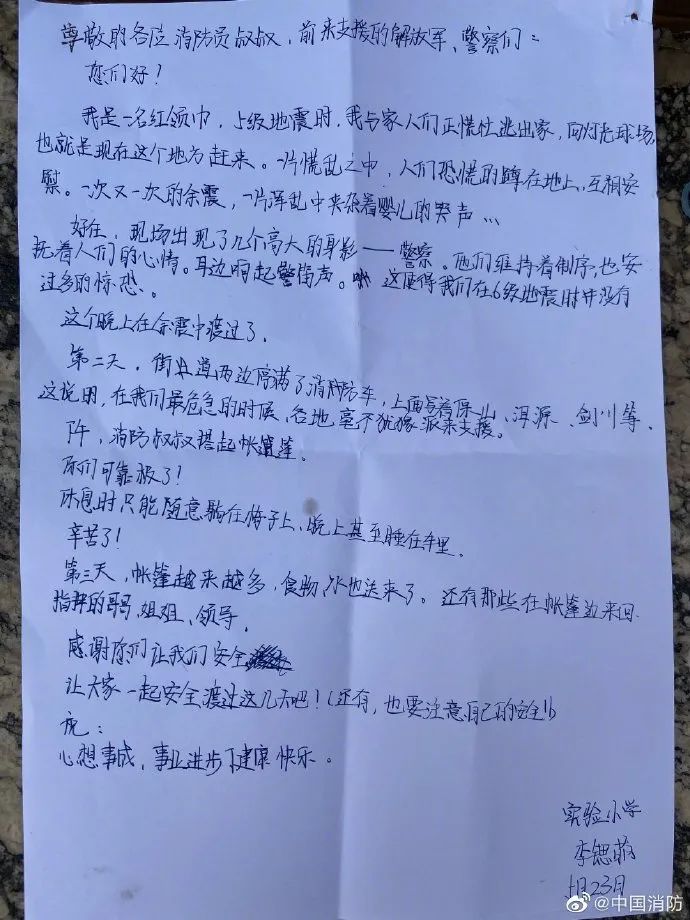 尊敬的各位消防员叔叔，前来支援的解放军、警察们：
您们好！
我是一名红领巾，5级地震时，我与家人们正慌忙逃出家，向灯光球场，
也就是现在这个地方赶来。一片慌乱之中，人们恐慌的蹲在地上，互相安
慰。一次又一次的余震，一片浑乱中夹杂着婴儿的哭声…
好在，现场出现了几个高大的身影——警察。他们维持着制序，也安
抚着人们的心情。耳边响起警笛声。这使得我们在6级地震时并没有
过多的惊恐。
这个晚上在余震中渡过了。
第二天，街道两边停满了消防车，上面写着保山、洱源、剑川等，
这说明，在我们最危急的时候，各地毫不犹豫派来支援。
下午，消防叔叔搭起帐篷。
你们可靠极了！
休息时只能随意躺在椅子上、晚上甚至睡在车里。
辛苦了！
第三天，帐篷越来越多，食物水也送来了。还有那些在帐篷边来回
指挥的哥哥、姐姐、领导，
感谢您们让我们安全
让大家一起安全渡过这几天吧！（还有，也要注意自己的安全!!）
祝：
心想事成，事业进步，健康快乐。
实验小学
李锶
5月23日
@中国消防